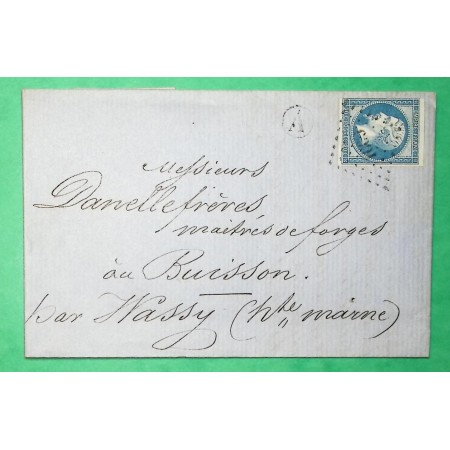 A
Messieurs
Danelle frères
maitres de forges
au Buisson.
par Wassy (hte marne)